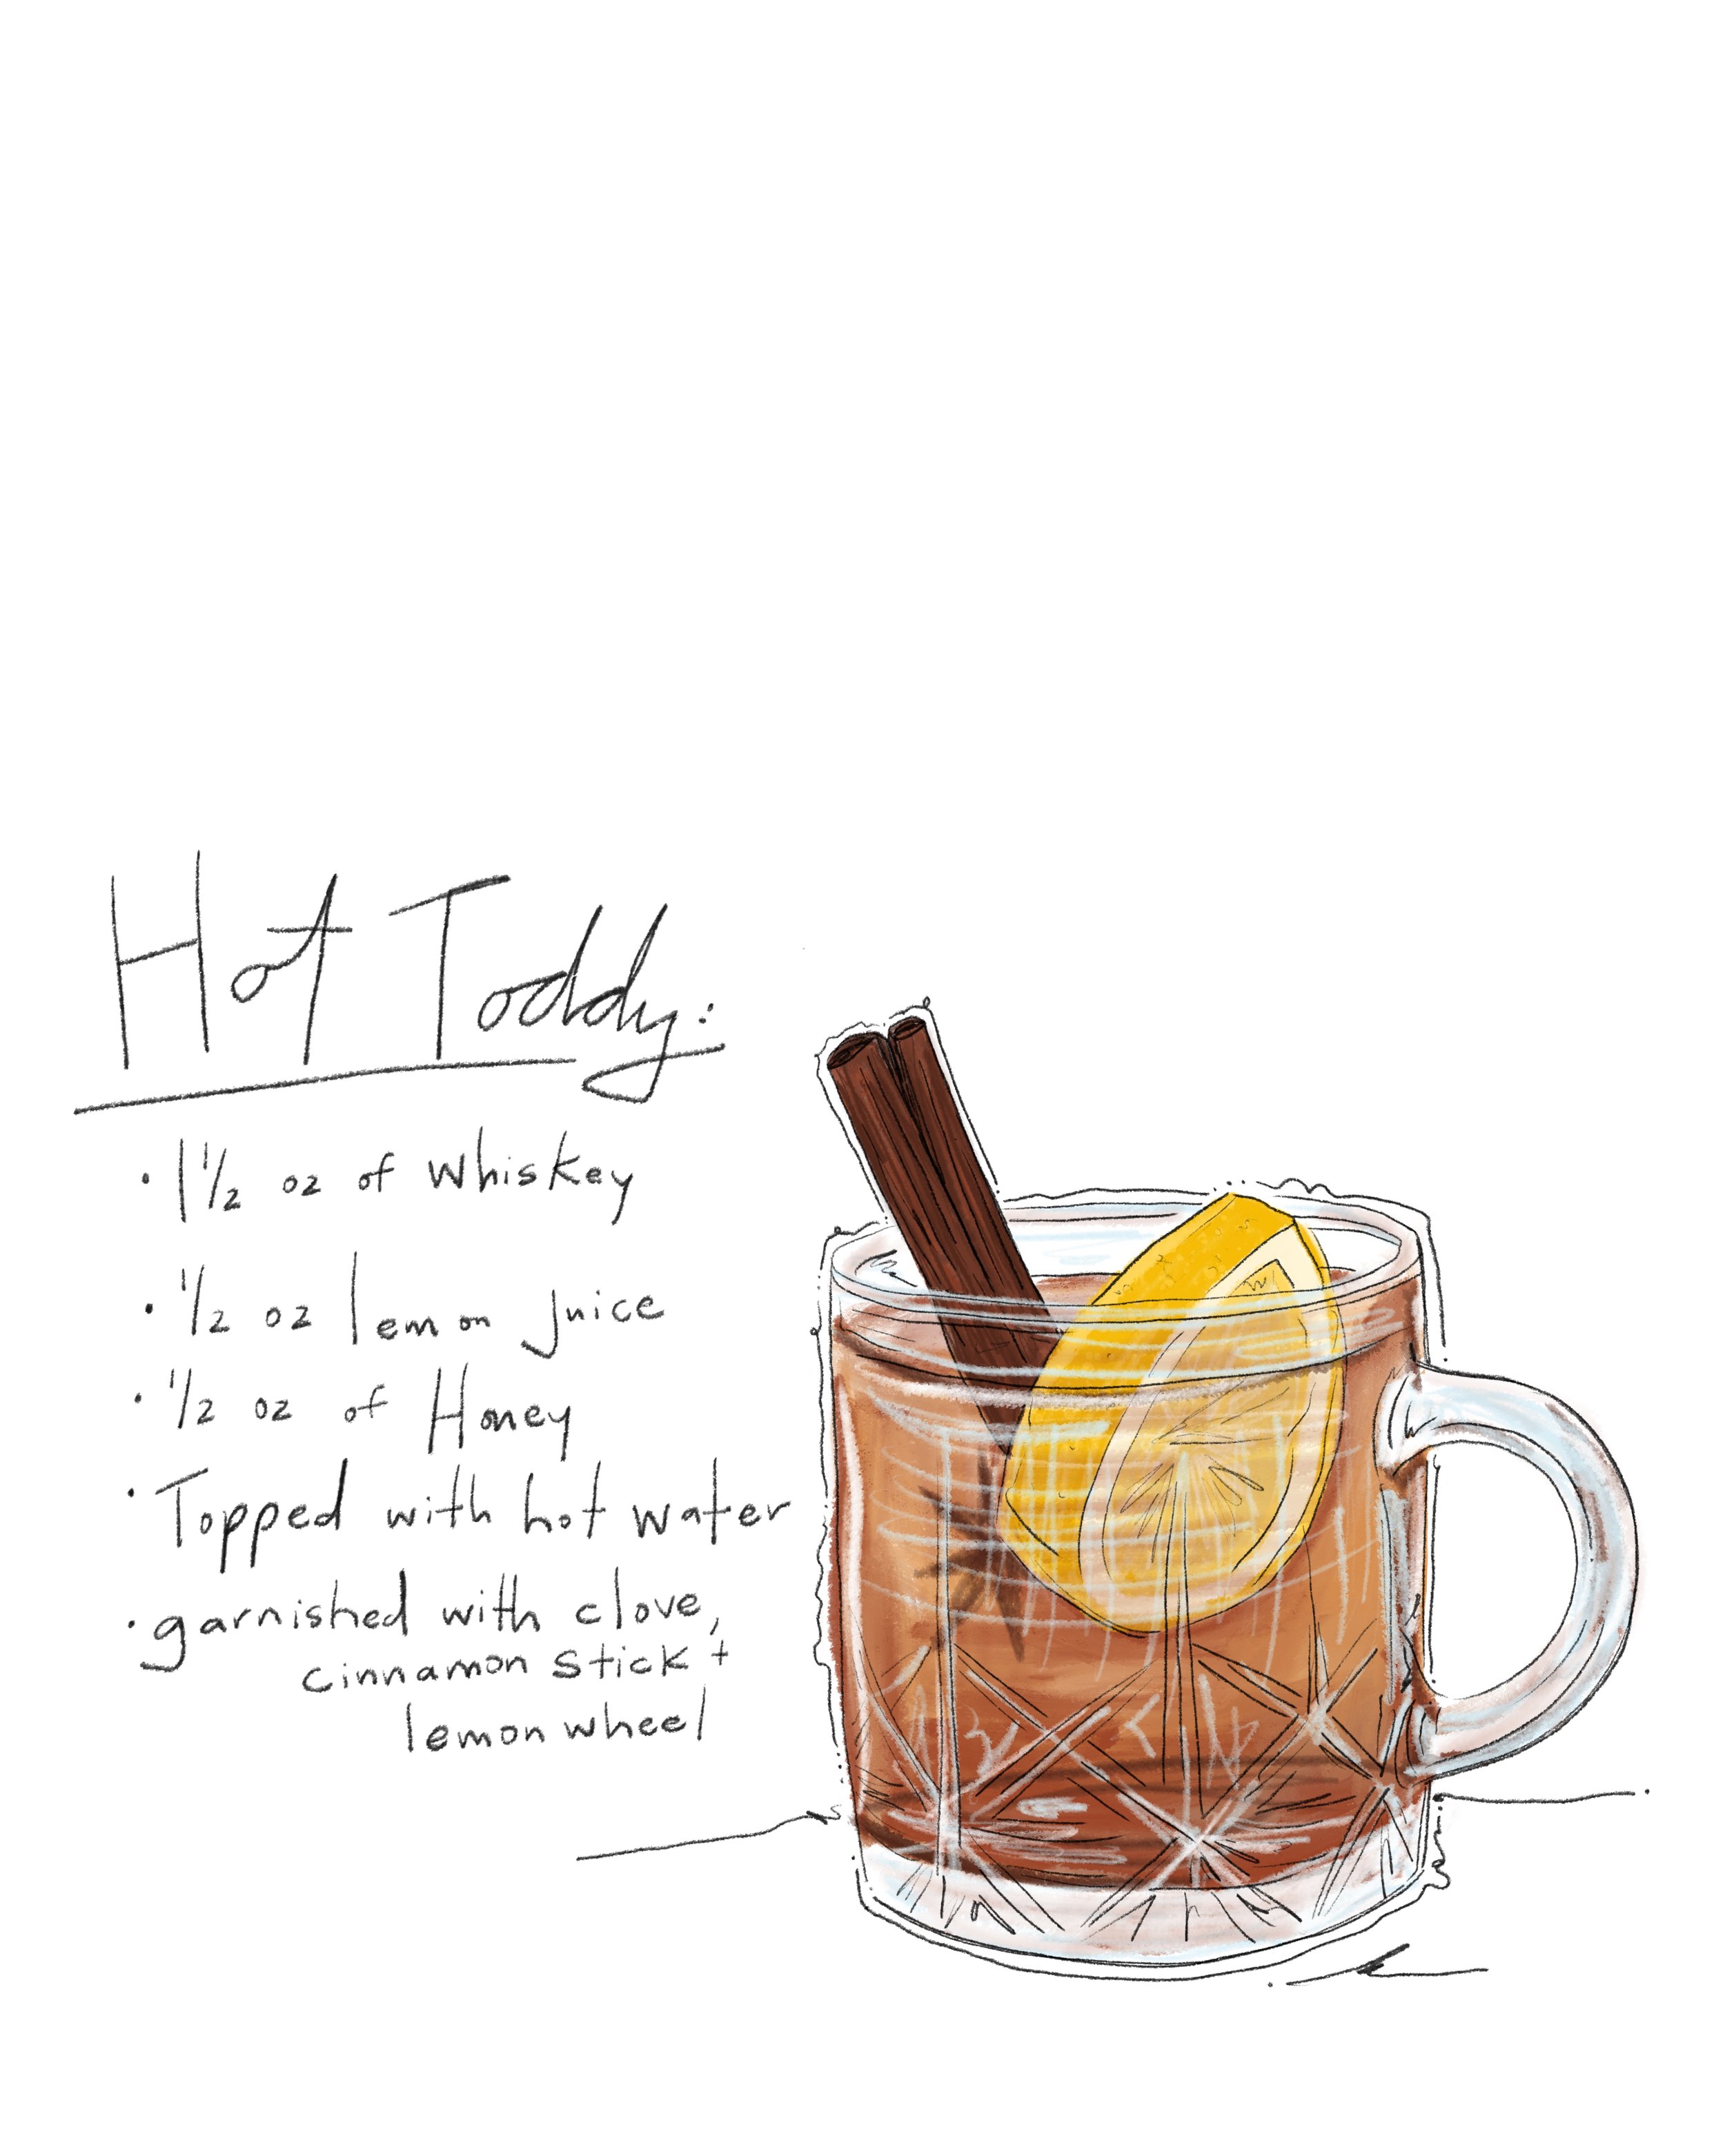 Hot Toddy:
· 1 1/2 oz of whiskey
· 1/2 oz lemon juice
· 1/2 oz of Honey
· Topped with hot water
· garnished with clove,
cinnamon stick +
lemon wheel